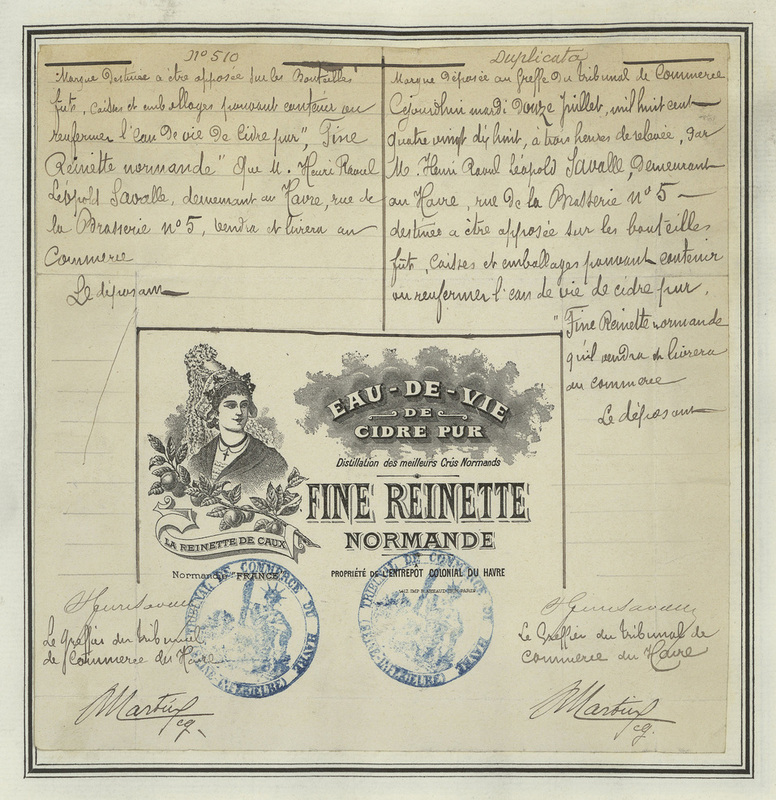 N° 510
Marque Destinée a être apposée sur les Bouteilles
fûts, Caisses et emballages pouvant contenir ou
renfermer l'eau de vie de Cidre pur", Fine
Reinette normande" que M. Henri Raoul
Léopold Savalle, demeurant au Havre, rue de
la Brasserie n° 5, vendra et livrera au
Commerce
Le déposant
Duplicata
Marque Déposée au Greffe du tribunal de Commerce
Cejourdhui mardi Douze Juillet, mil huit cent
quatre vingt dix huit, à trois heures de relevée, par
M. Henri Raoul Léopold Savalle, Demeurant
au Havre, rue de la Brasserie n° 5
destinée a être apposée sur les bouteilles
fûts, Caisses et emballages pouvant contenir
ou renfermer l'eau de vie de cidre pur,
"Fine Reinette normande
qu'il vendra et livrera
au commerce
Le déposant
EAU-DE-VIE
DE
CIDRE PUR
Distillation des meilleurs Crûs Normands
FINE REINETTE
NORMANDE
LA REINETTE DE CAUX
Normandie "FRANCE"
PROPRIÉTÉ DE L'ENTREPOT COLONIAL DU HAVRE
TRIBUNAL DE COMMERCE DU HAVRE
TRIBUNAL DE COMMERCE DU HAVRE
Le Greffier du tribunal
de Commerce du Havre
Le Greffier du tribunal de
commerce du Havre